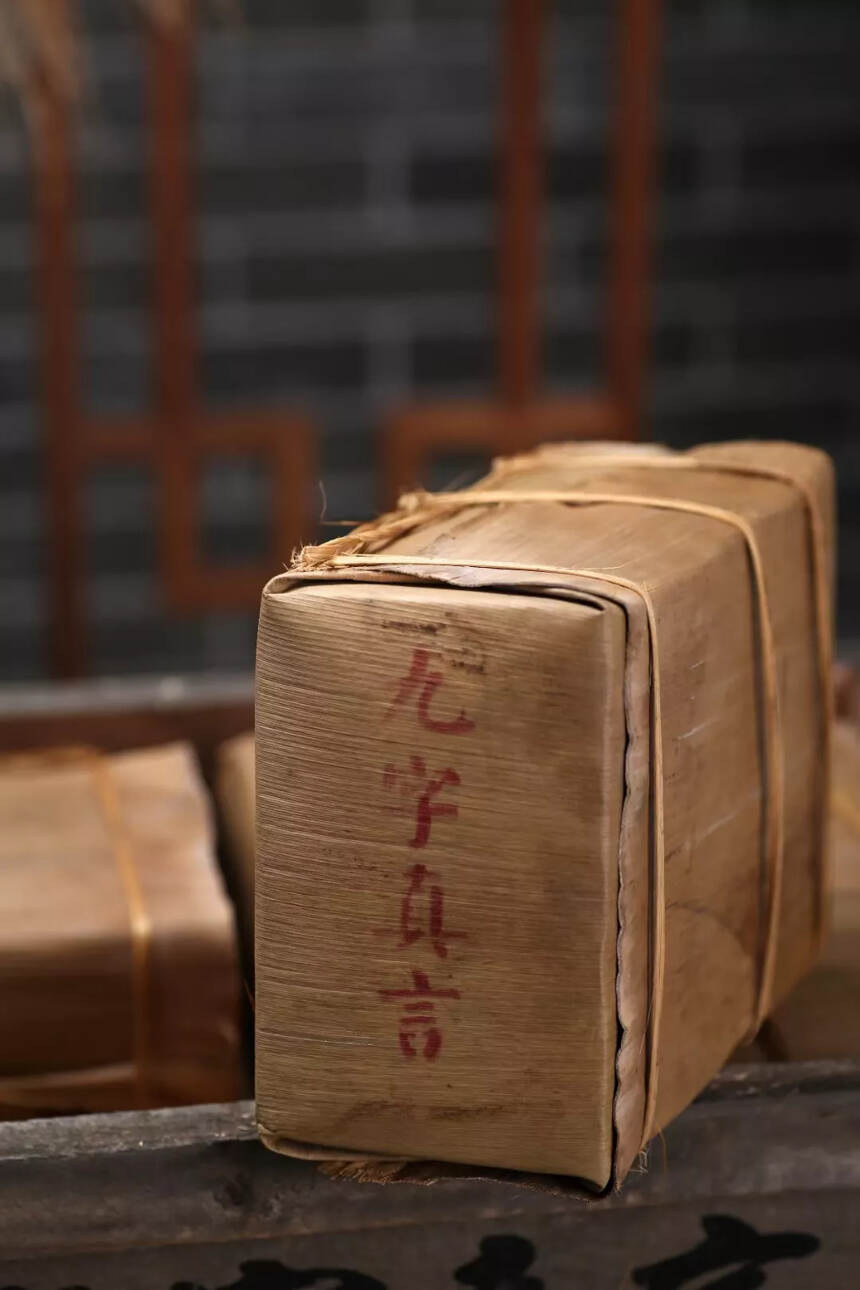 九字真言